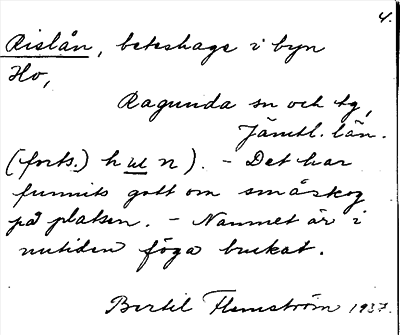 4.
Rislån, beteshage i byn
Ho,
Ragunda sn och tg,
Jämtl. län.
(forts.) h ul n). – Det har
funnits gott om småskog
på platsen. – Namnet är i
nutiden föga brukat.
Bertil Flemström 1937.